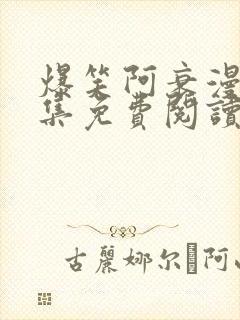 爆笑阿衰漫
集免費閱讀
古麗娜尔 阿